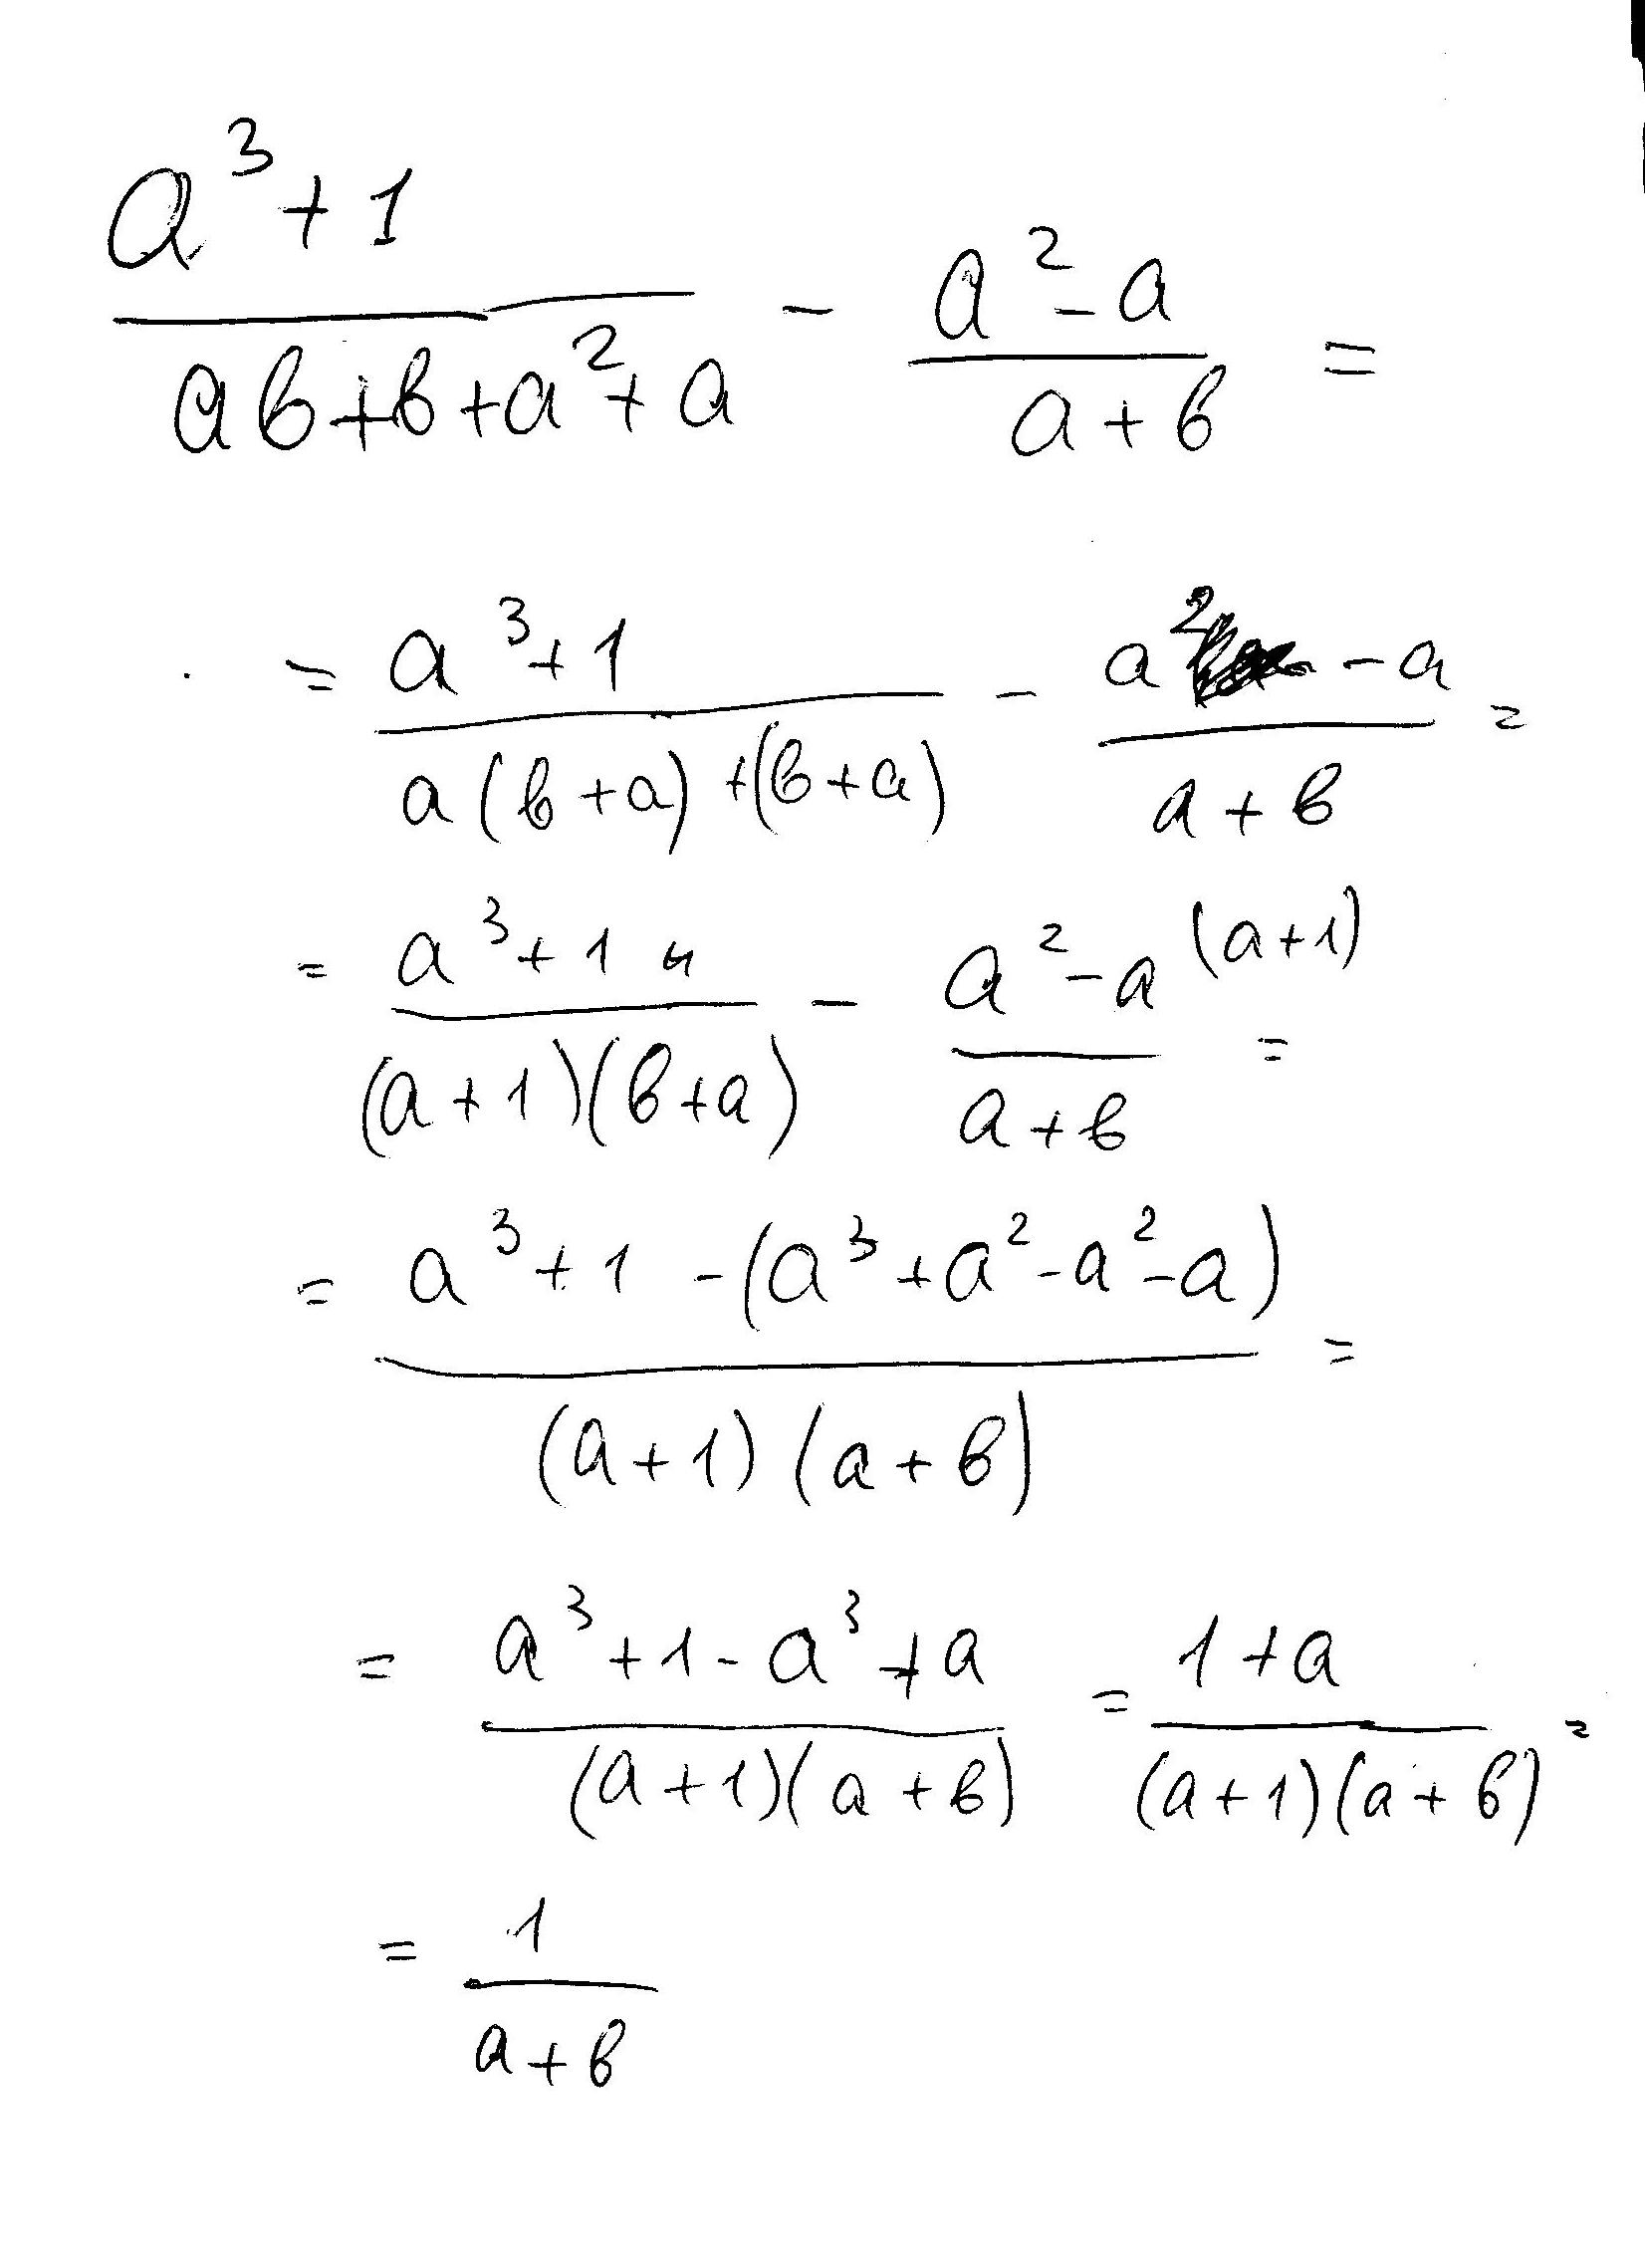 a³+1 / ab+b+a²+a - a²-a / a+b =
= a³+1 / a(b+a)+(b+a) - a²-a / a+b =
= a³+1 / (a+1)(b+a) - a²-a (a+1) / a+b =
= a³+1-(a³+a²-a²-a) / (a+1)(a+b) =
= a³+1-a³+a / (a+1)(a+b) = 1+a / (a+1)(a+b) =
= 1 / a+b